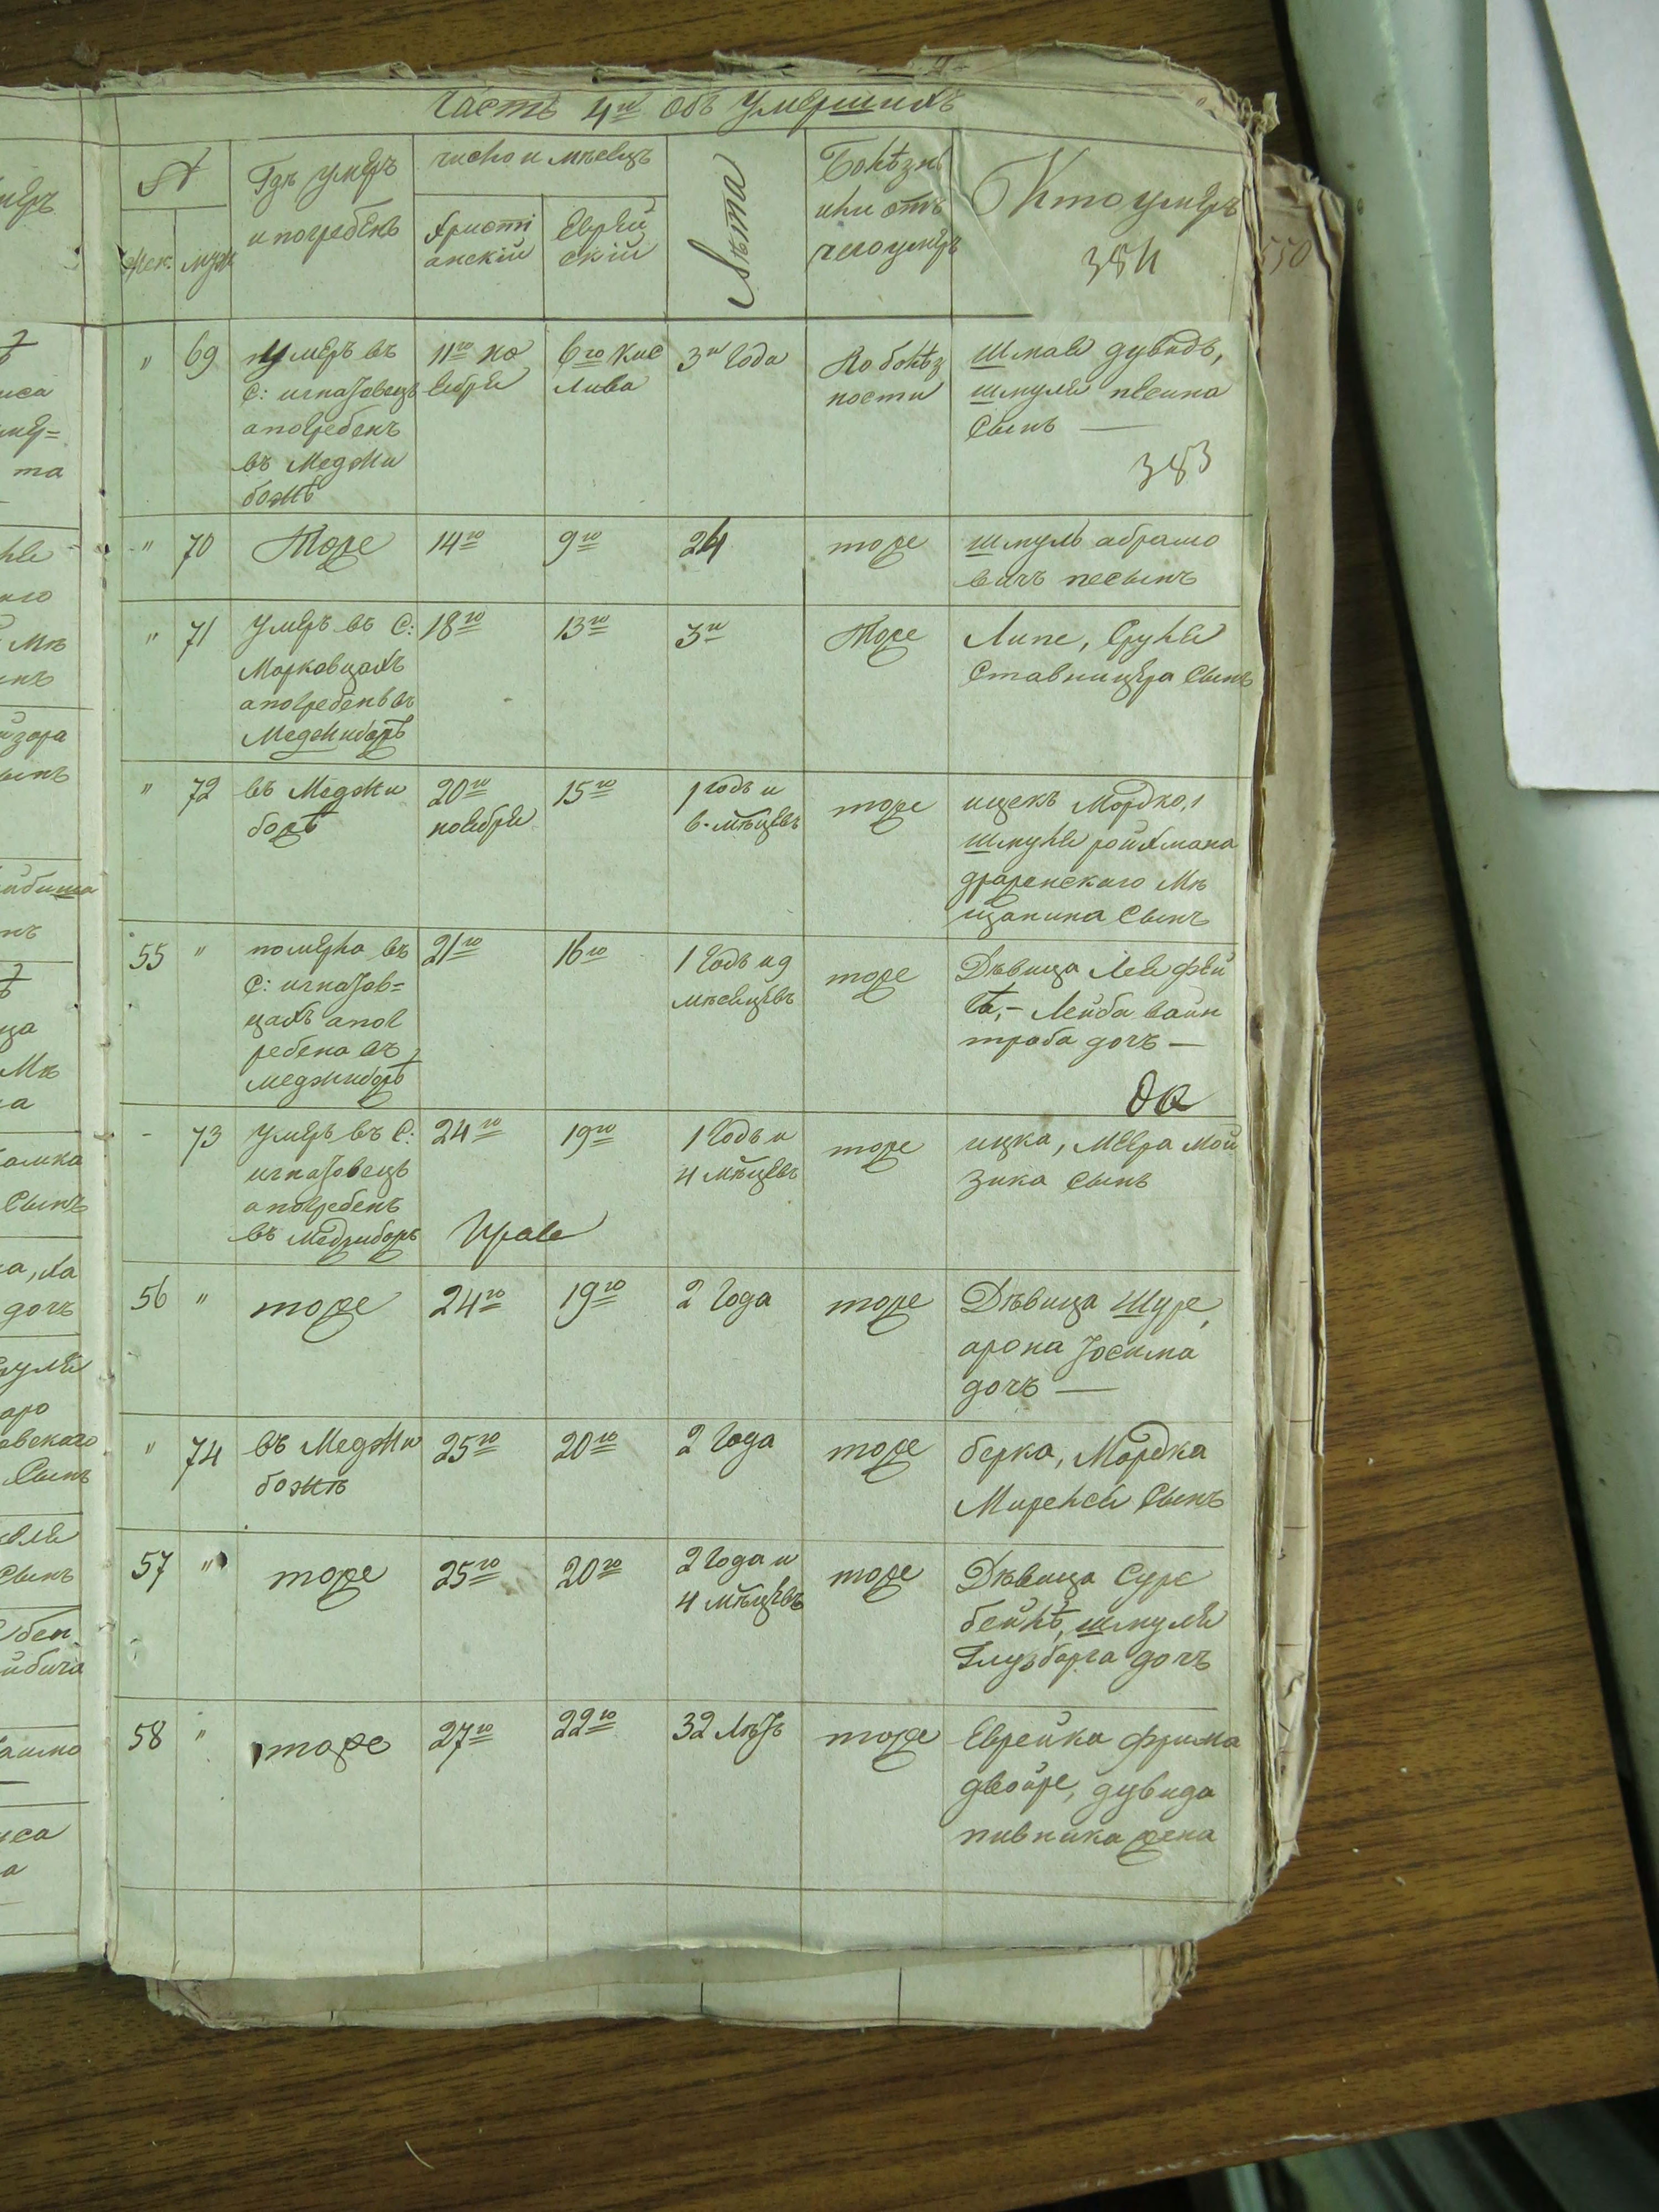 Часть 4я объ Умершихъ
№
Жен.
муж
Гдѣ умеръ
и погребенъ
число и мѣсецъ
Христі
анскій
Еврей
скій
Лѣта
Болѣзнь
или отъ
чего умеръ
Кто умеръ
384
550
"
69
умеръ въ
С: игнатовецъ
а погребенъ
въ Меджи
божѣ
11го но
ебрея
6го Кис
лива
3и Года
По болѣз
ности
Шмае дувидъ,
шмуля песина
сынъ —
383
"
70
Тоже
14го
9го
24
тоже
шмуль абрамо
вичъ песынъ
"
71
Умеръ въ С:
Марковцахъ
а погребенъ въ
Меджибожѣ
18го
13го
3и
Тоже
Липе, Срулея
Ставницера сынъ
"
72
въ Меджи
божѣ
20го
ноебрея
15го
1 годъ и
6-мѣцевъ
тоже
ицекъ Мордко,
шмулея ройхмана
мѣ
щанина сынъ
55
"
померла въ
С: игнатов=
цахъ а пог
ребена въ
меджибожѣ
21го
16го
1 Годъ и 9
мѣсецевъ
тоже
Дѣвица Лея фей
гѣ,- Лейба вайн
траба дочъ —
-
73
Умеръ въ С:
игнатовецъ
а погребенъ
въ Меджибожѣ
24го
19го
1 Годъ и
4 мѣцевъ
тоже
ицка, Меера мой
зика сынъ
56
"
тоже
24го
19го
2 Года
тоже
Дѣвица Шуре,
арона Іосима
дочъ —
"
74
въ Меджи
божѣ
25го
20го
2 Года
тоже
берка, Мордка
Мирелсея сынъ
57
"
тоже
25го
20го
2 Года и
4 мѣцевъ
тоже
Дѣвица Суре
бейлѣ, шмуля
Глузбарга дочъ
58
"
тоже
27го
22го
32 Лѣтъ
тоже
Еврейка фрима
двойре, дувида
пивника жена